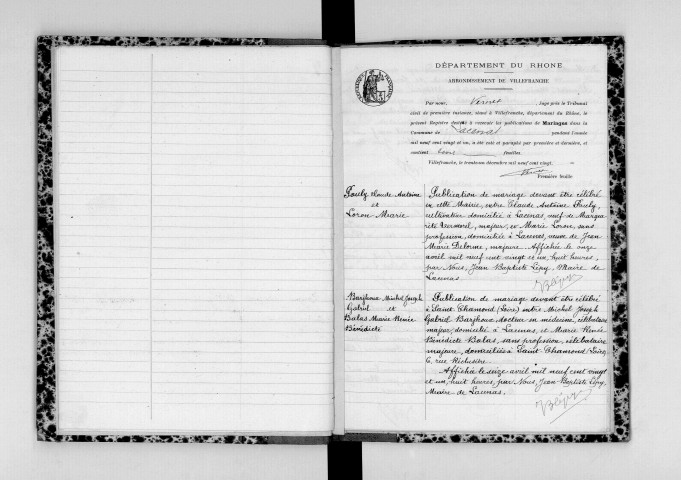 DÉPARTEMENT DU RHONE
ARRONDISSEMENT DE VILLEFRANCHE
Par nous, Vernet, Juge près le Tribunal
civil de première instance, séant à Villefranche, département du Rhône, le
présent Registre destiné à recevoir les publications de Mariages dans la
Commune de Lacenas pendant l'année
mil neuf cent vingt et un, a été coté et paraphé par première et dernière, et
contient feuilles.
Villefranche, le trente-un décembre mil neuf cent vingt.
Première feuille
Claude Antoine
et
Loron Marie
Publication de mariage devant être célébré
en cette Mairie, entre Claude Antoine
cultivateur domicilié à Lacenas, veuf de Margue
rite Vermorel, majeur, et Marie Loron, sans
profession, domiciliée à Lacenas, veuve de Jean
Marie Delorme, majeure. Affichée le onze
avril mil neuf cent vingt et un, huit heures,
par Nous, Jean Baptiste Lépy, Maire de
Lacenas
JBLépy
Michel Joseph
Gabriel et
Balas Marie Renée
Bénédicte
Publication de mariage devant être célébré
à Saint Chamond, (Loire) entre Michel Joseph
Gabriel docteur en médecine, célibataire
majeur, domicilié à Lacenas, et Marie Renée
Bénédicte Balas, sans profession, célibataire
majeure, domiciliée à Saint Chamond Loire,
6, rue Richelieu.
Affichée le seize avril mil neuf cent vingt
et un, huit heures, par Nous, Jean Baptiste Lépy,
Maire de Lacenas.
JBLépy